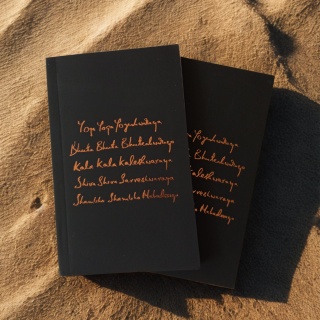 Yoga Yoga Yogeshwaraya
Bhuta Bhuta Bhuteshwaraya
Kala Kala Kaleshwaraya
Shiva Shiva Sarveshwaraya
Shambho Shambho Mahadevaya
Yogeshwaraya
Bhuteshwaraya
Kaleshwaraya
Sarveshwaraya
Mahadevaya